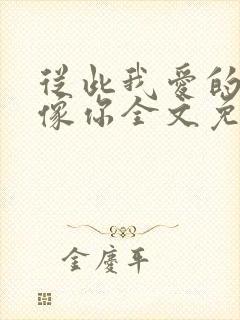 從此我愛的
像你全文免
金慶平